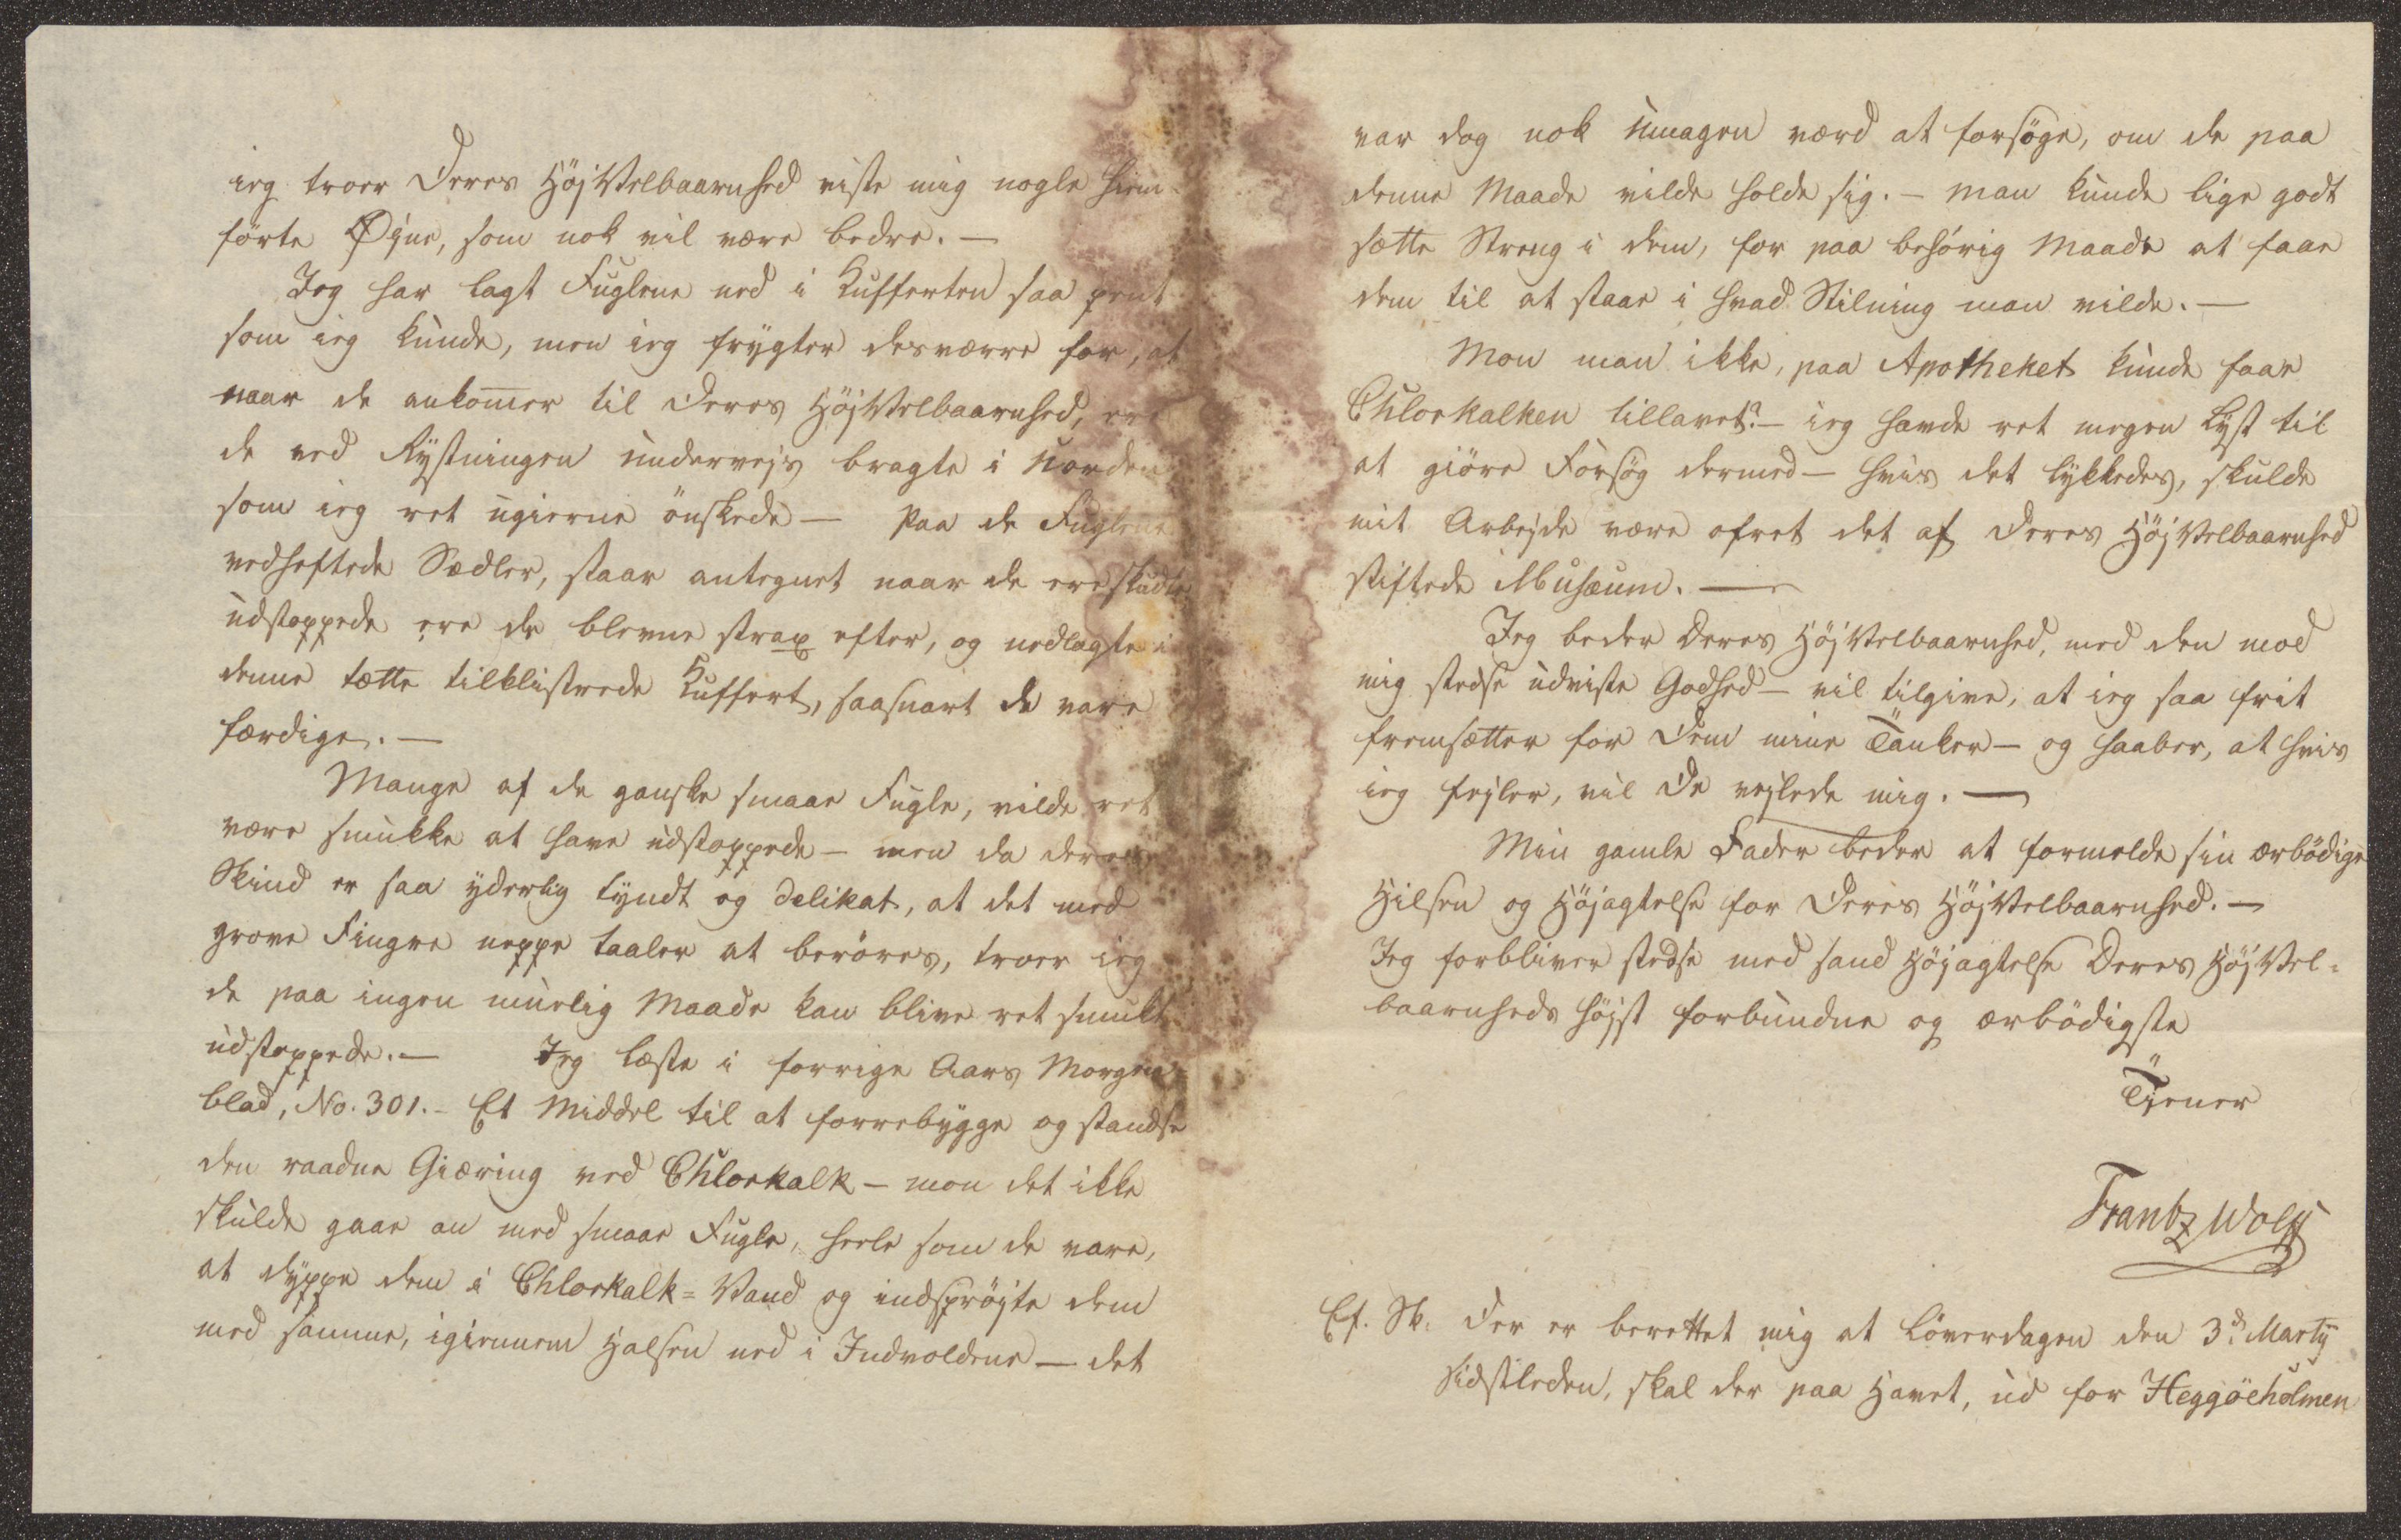 ieg troer Deres HöjVelbaarnhed viste mig nogle hiem-
förte Øjne, som nok vil være bedre. —
Jeg har lagt Fuglene ned i Kufferten saa pent
som ieg kunde, men ieg frygter desværre for, at
naar de ankomer til Deres HöjVelbaarnhed, ere
de ved Rystningen undervejs bragte i Uorden
som ieg ret ugierne önskede — Paa de Fuglene
vedheftede Sedler, staar antegnet naar de ere skudte,
udstoppede ere de blevne strax efter, og nedlagte i
denne tætte tilklistrede Kuffert, saasnart de vare
færdige. —
Mange af de ganske smaae Fugle, vilde ret
være smukke at have udstoppede — men da deres
Skind er saa yderlig tyndt og delikat, at det med
grove Fingre neppe taaler at beröres, troer ieg
de paa ingen muelig Maade kan blive ret smukt
udstoppede. — Jeg læste i forrige Aars Morgen-
blad, No. 301. — Et Middel til at forrebygge og standse
den raadne Giæring ved Chlorkalk — mon det ikke
skulde gaae an med smaae Fugle, heele som de vare,
at dyppe dem i Chlorkalk = Vand og indspröjte dem
med samme, igiennem Halsen ned i Indvoldene — det
var dog nok Umagen værd at forsöge, om de paa
denne Maade vilde holde sig. — man kunde lige godt
sætte Streng i dem, for paa behörig Maade at faae
dem til at staae i hvad Stilning man vilde. —
Mon man ikke, paa Apotheket kunde faae
Chlorkalken tillavet? — ieg havde ret megen Lyst til
at giöre Forsög dermed — hvis det lykkedes, skulde
mit Arbejde være ofret det af Deres HöjVelbaarnhed
stiftede Musæum. —
Jeg beder Deres HöjVelbaarnhed, med den mod
mig stedse udviste Godhed — vil tilgive, at ieg saa frit
fremsætter for Dem mine Tanker — og haaber, at hvis
ieg fejler, vil De vejlede mig. —
Min gamle Fader beder at formelde sin ærbödige
Hilsen og Höjagtelse for Deres HöjVelbaarnhed. —
Jeg forbliver stedse med sand Höjagtelse Deres HöjVel=
baarnheds höjst forbundne og ærbödigste
Tjener
Frantz Wolff
Ef. Sk. Der er berettet mig at Löverdagen den 3d. Martÿ
sidstleden, skal der paa Havet, ud for Heggöeholmen